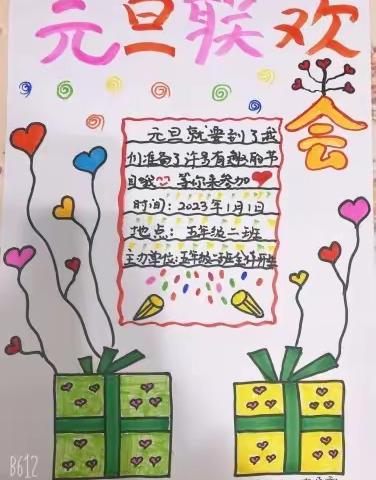 元旦联欢会
元旦就要到了我
们准备了许多有趣的节
目哦 等你来参加
时间：2023年1月1日
地点：五年级二班
主办单位：五年级二班全体师生
B612